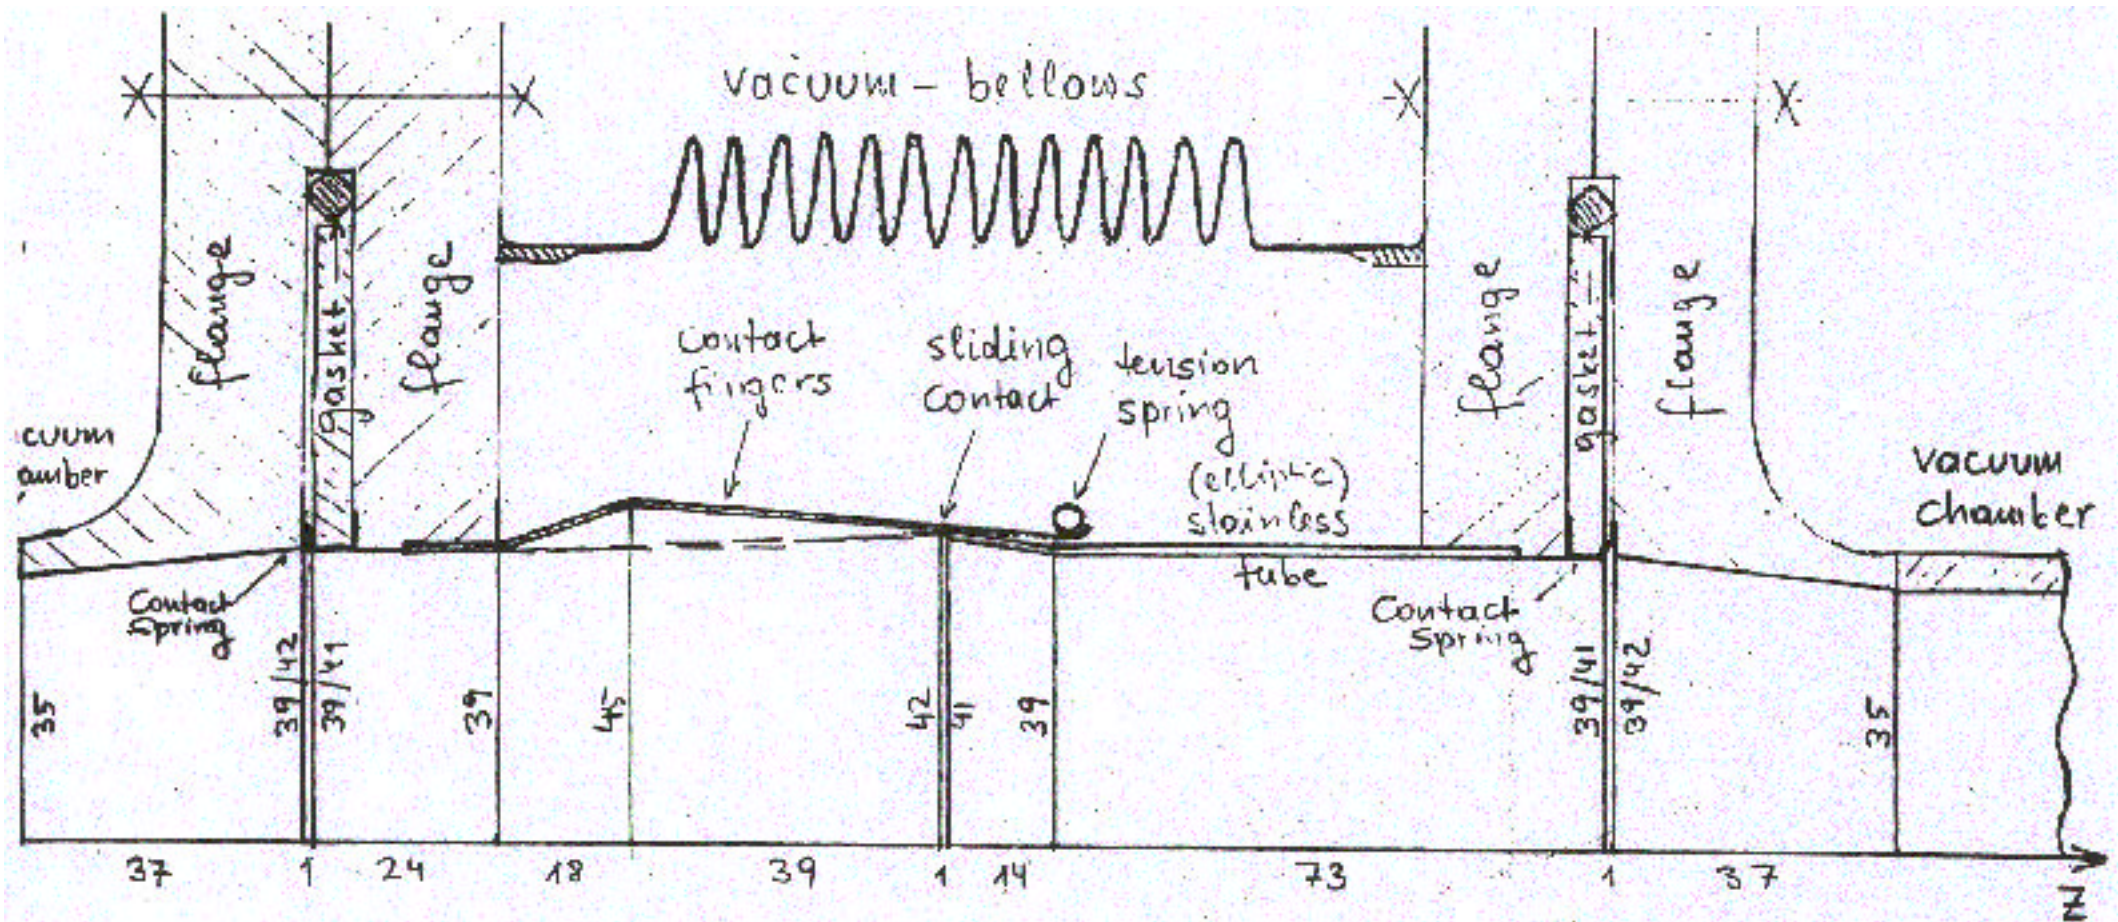 vacuum – bellows
flange
gasket
flange
contact
fingers
sliding
contact
tension
spring
(elliptic)
stainless
tube
flange
gasket
flange
cuum
amber
vacuum
chamber
Contact
Spring
Contact
Spring
35
39/42
39/41
39
45
42
41
39
39/41
39/42
35
37
1
24
18
39
1
14
73
1
37
Z